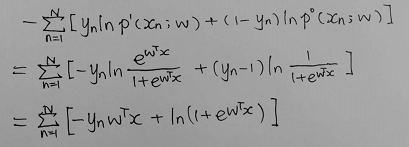 - ∑_{n=1}^{N} [ y_n ln p¹(x_n; w) + (1 - y_n) ln p⁰(x_n; w) ]
= ∑_{n=1}^{N} [ -y_n ln \frac{e^{w^T x}}{1 + e^{w^T x}} + (y_n - 1) ln \frac{1}{1 + e^{w^T x}} ]
= ∑_{n=1}^{N} [ -y_n w^T x + ln(1 + e^{w^T x}) ]